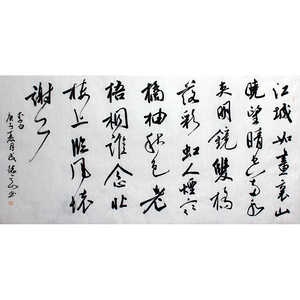 江城如畫裏山
曉望晴空兩水
夾明鏡雙橋
落彩虹人煙寒
橘柚秋色老
梧桐誰念北
樓上臨風懷
謝公
李白